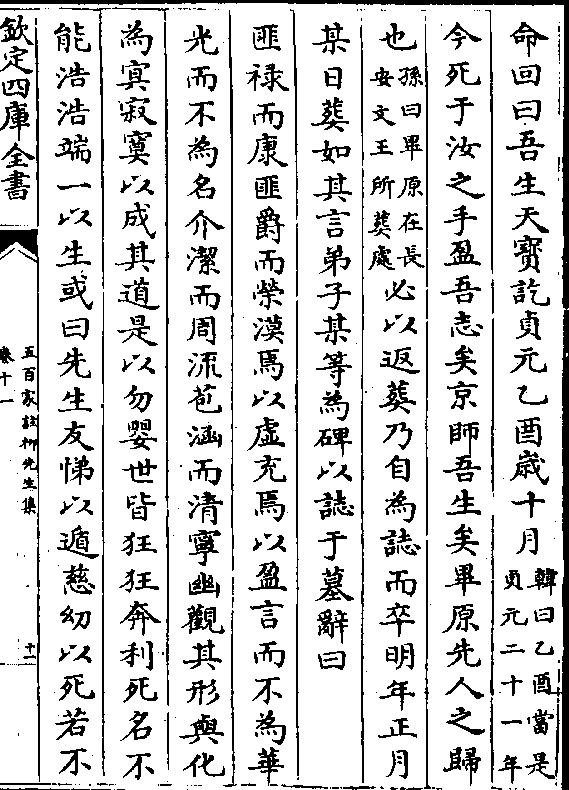 命回曰吾生天寳訖貞元乙酉歳十月韓曰乙酉當是貞元二十一年
今死于汝之手盈吾志矣京師吾生矣畢原先人之歸
也孫曰畢原在長安文王所葬處必以返葬乃自為誌而卒明年正月
某日葬如其言弟子某等為碑以誌于墓辭曰
匪禄而康匪爵而榮漠焉以虚充焉以盈言而不為華
光而不為名介潔而周流苞涵而清寧幽觀其形與化
為冥寂寞以成其道是以勿嬰世皆狂狂奔利死名不
能浩浩端一以生或曰先生友悌以遁慈幼以死若不
欽定四庫全書
五百家註柳先生集
卷十一
十一